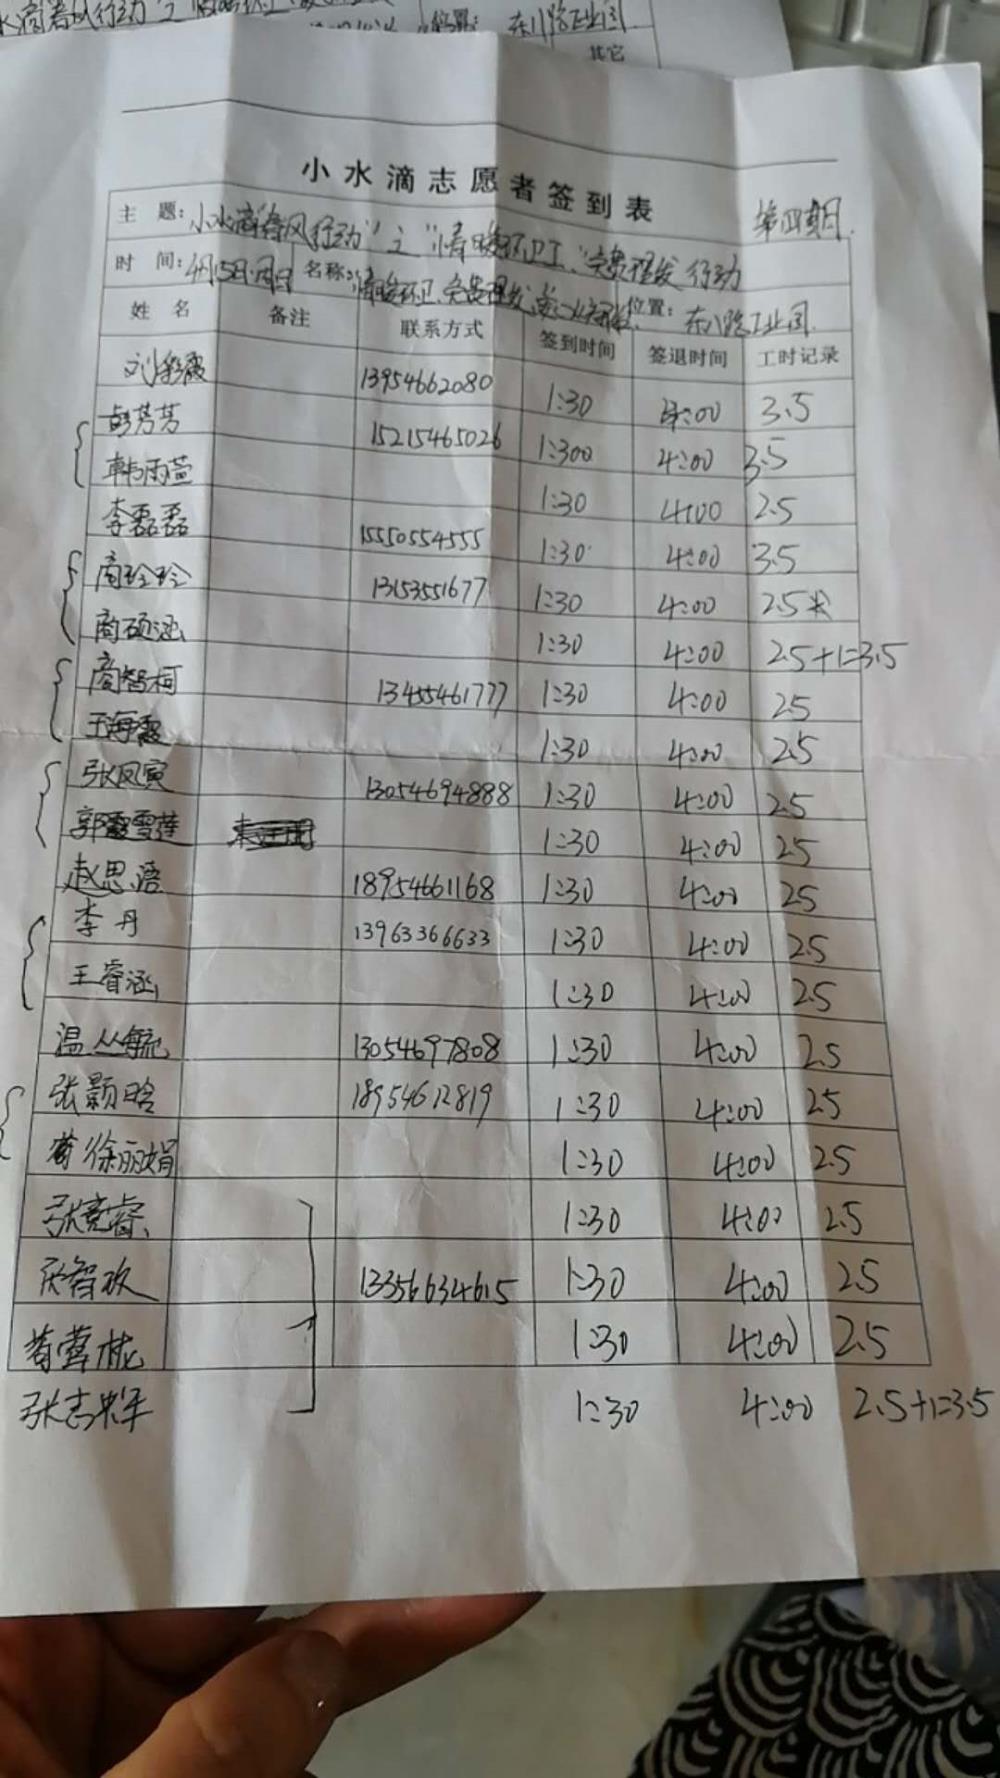 其它
小水滴志愿者签到表
第四期
主 题: 小水滴"春风行动"之"情暖环卫工、免费理发"行动
时 间: 4月15日·周日 名称: 情暖环卫、免费理发 位置: 东八路工业园
姓 名 备注 联系方式 签到时间 签退时间 工时记录
刘彩霞 13954662080 1:30 4:00 3.5
彭芳芳 15215465026 1:300 4:00 3.5
韩雨萱 1:30 4:00 2.5
李磊磊 15550554555 1:30 4:00 3.5
商玲玲 13153551677 1:30 4:00 2.5
商硕涵 1:30 4:00 2.5+1=3.5
商智柯 13455461777 1:30 4:00 2.5
王海霞 1:30 4:00 2.5
张凤寅 13054694888 1:30 4:00 2.5
郭雪莲 1:30 4:00 2.5
赵思语 18954661168 1:30 4:00 2.5
李丹 13963366633 1:30 4:00 2.5
王睿涵 1:30 4:00 2.5
温丛毓 13054697808 1:30 4:00 2.5
张颢晗 18954612819 1:30 4:00 2.5
徐丽娟 1:30 4:00 2.5
张竞睿 1:30 4:00 2.5
智欢 13356634615 1:30 4:00 2.5
1:30 4:00 2.5
张志 1:30 4:00 2.5+1=3.5